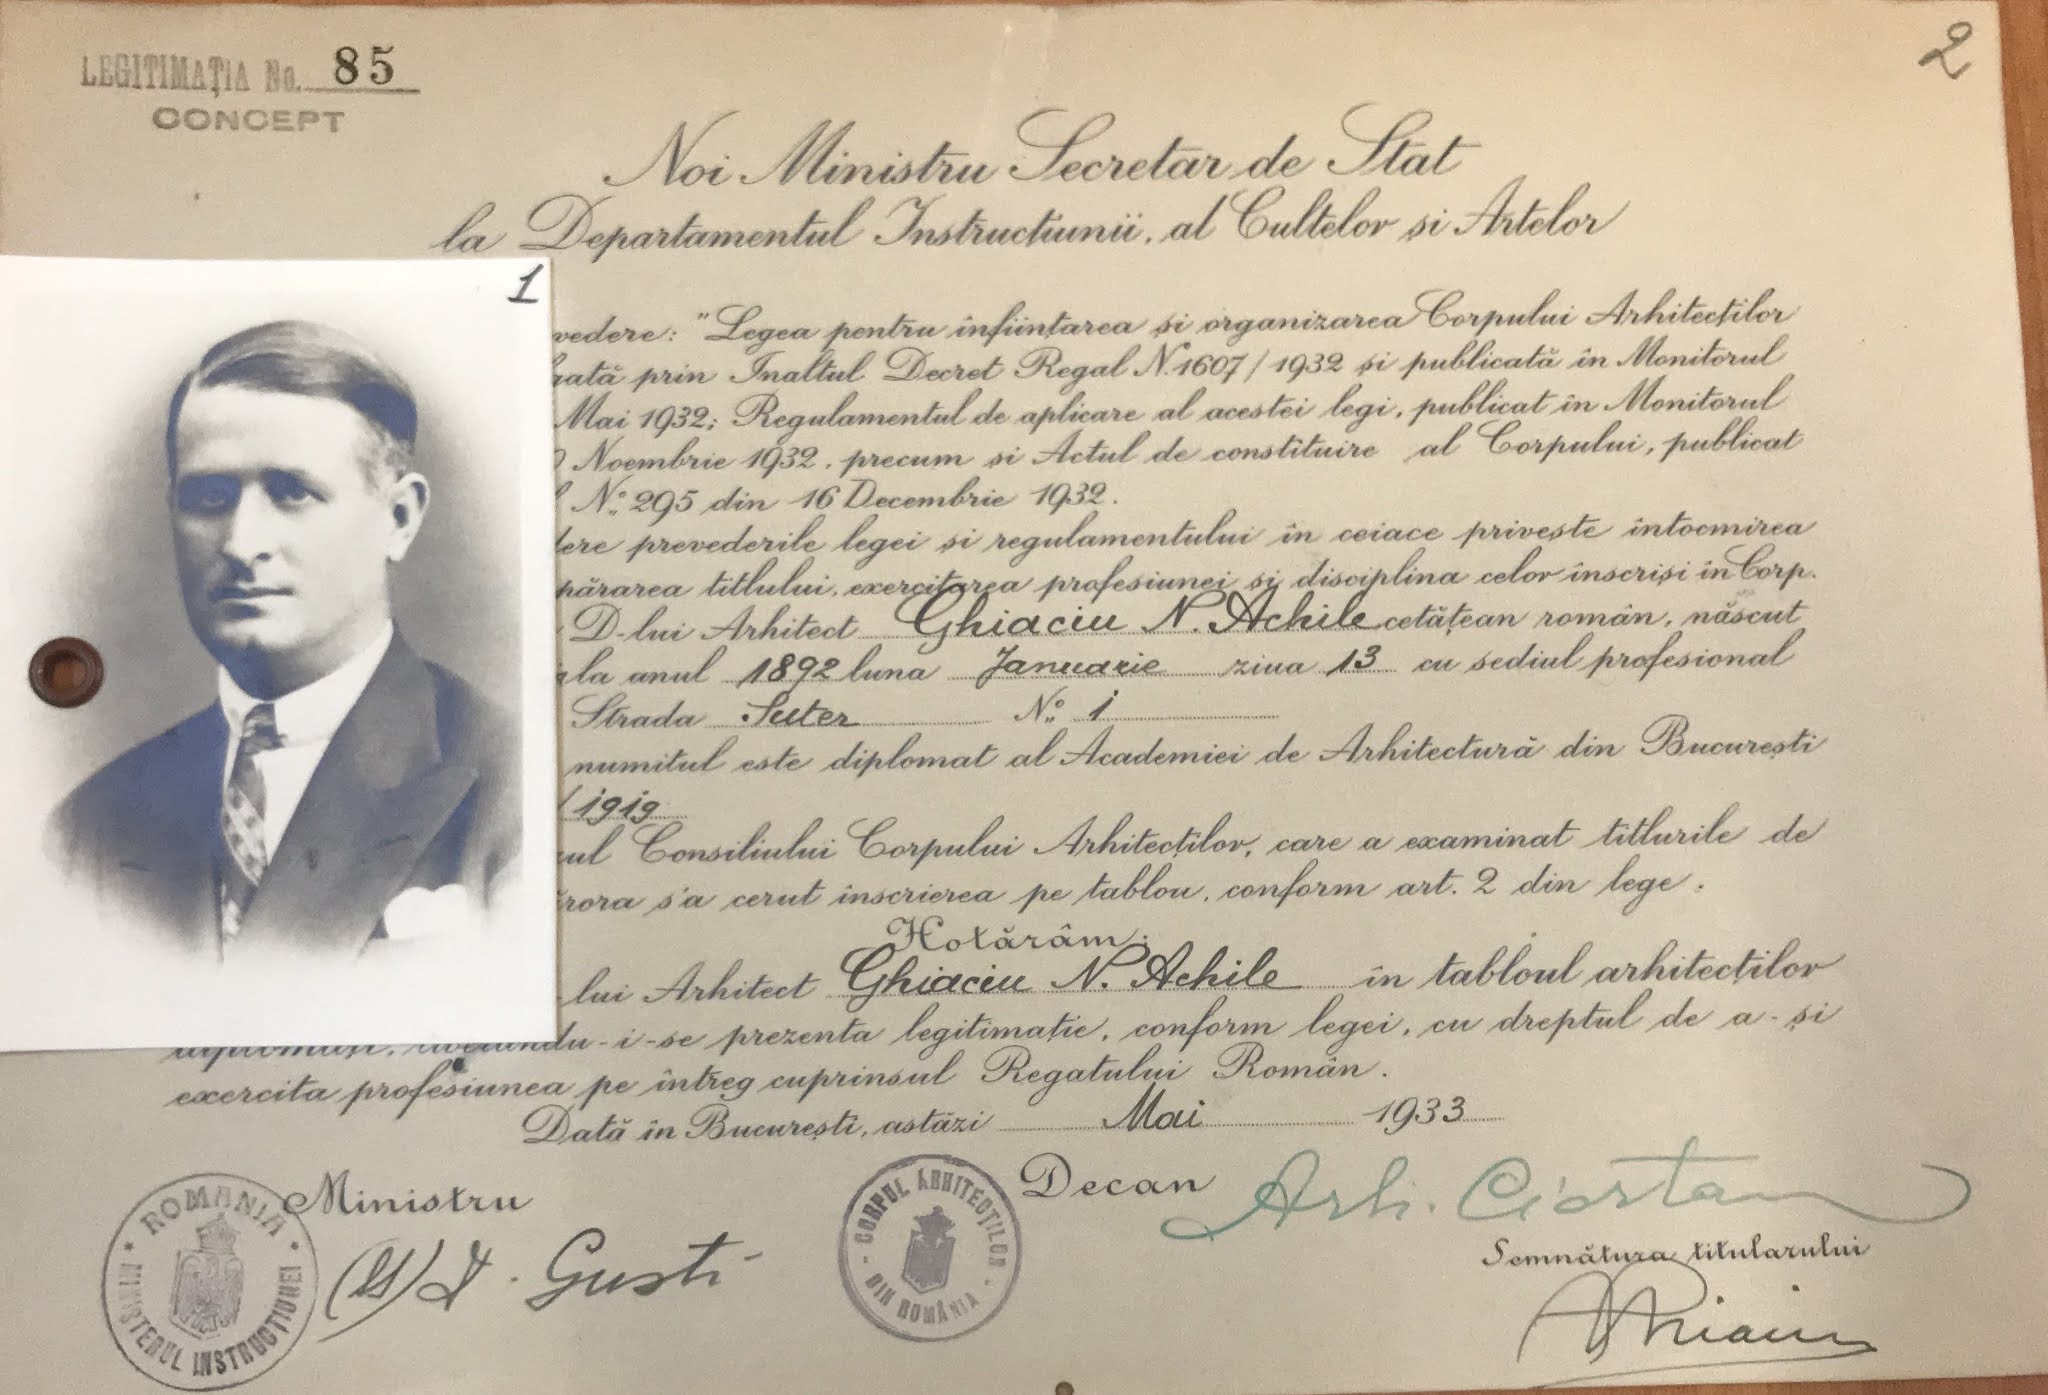 LEGITIMAȚIA No. 85
CONCEPT
2
Noi Ministru Secretar de Stat
la Departamentul Instrucțiunii, al Cultelor și Artelor
1
vedere: "Legea pentru înființarea și organizarea Corpului Arhitecților
prin Inaltul Decret Regal N. 1607/1932 și publicată în Monitorul
Mai 1932; Regulamentul de aplicare al acestei legi, publicat în Monitorul
Noembrie 1932, precum și Actul de constituire al Corpului, publicat
No. 295 din 16 Decembrie 1932.
prevederile legei și regulamentului în ceiace privește întocmirea
titlului, exercitarea profesiunei și disciplina celor înscriși în Corp.
D-lui Arhitect Ghiaciu N. Achile cetățean român, născut
la anul 1892 luna Januarie ziua 13 cu sediul profesional
Strada Suter No. 1
numitul este diplomat al Academiei de Arhitectură din București
1919
Consiliului Corpului Arhitecților, care a examinat titlurile de
s'a cerut înscrierea pe tablou, conform art. 2 din lege.
Hotărâm:
lui Arhitect Ghiaciu N. Achile în tabloul arhitecților
-i-se prezenta legitimație, conform legei, cu dreptul de a-și
exercita profesiunea pe întreg cuprinsul Regatului Român.
Dată în București, astăzi Mai 1933
Ministru
Decan Arh. Ciortan
(ss) D. Gusti
Semnătura titularului
ROMANIA
MINISTERUL INSTRUCȚIUNEI
CORPUL ARHITECȚILOR
DIN ROMÂNIA